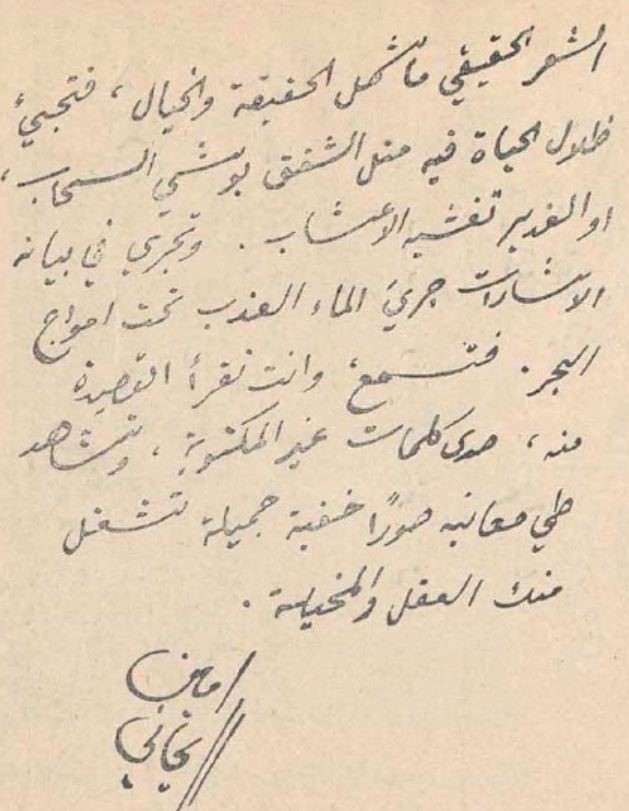 الشعر الحقيقي ما شمل الحقيقة والخيال ، فتجيئ
ظلال الحياة فيه مثل الشفق يوشي السحاب ،
او الغدير تغشيه الاعشاب . وتجري في بيانه
الاشارات جريَ الماء العذب تحت امواج
البحر . فتسمع ، وانت تقرأ القصيدة
منه ، صدى كلمات غير المكتوبة ، وتشاهد
طي معانيه صورًا خفية جميلة تشغل
منك العقل والمخيلة .
امين
الريحاني